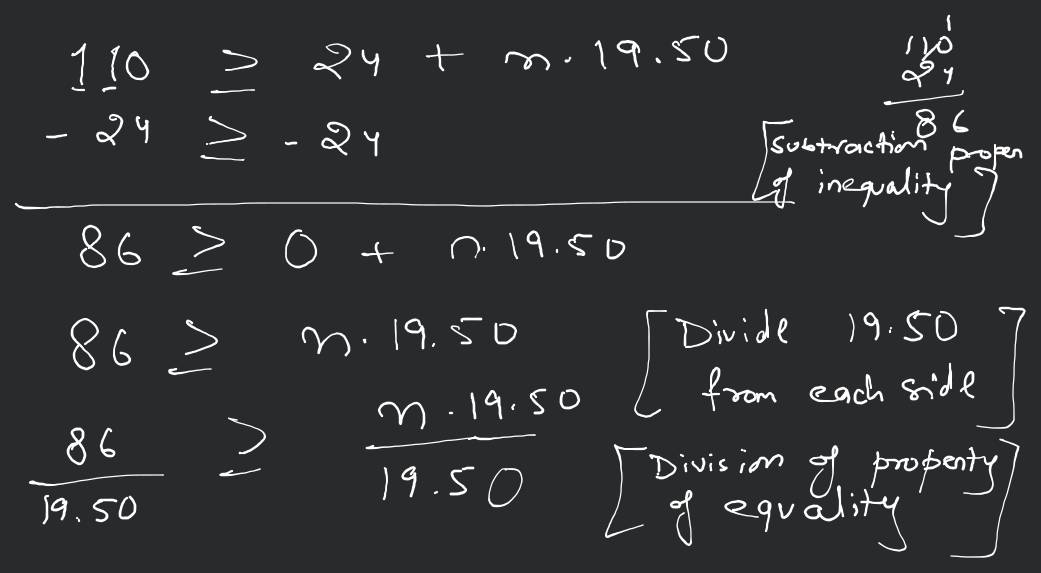 110 ≥ 24 + n. 19.50
- 24 ≥ - 24
110
24
86
[subtraction proper
of inequality]
86 ≥ 0 + n. 19.50
86 ≥ n. 19.50
[Divide 19.50
from each side]
86/19.50 ≥ n. 19.50/19.50
[Division of property
of equality]